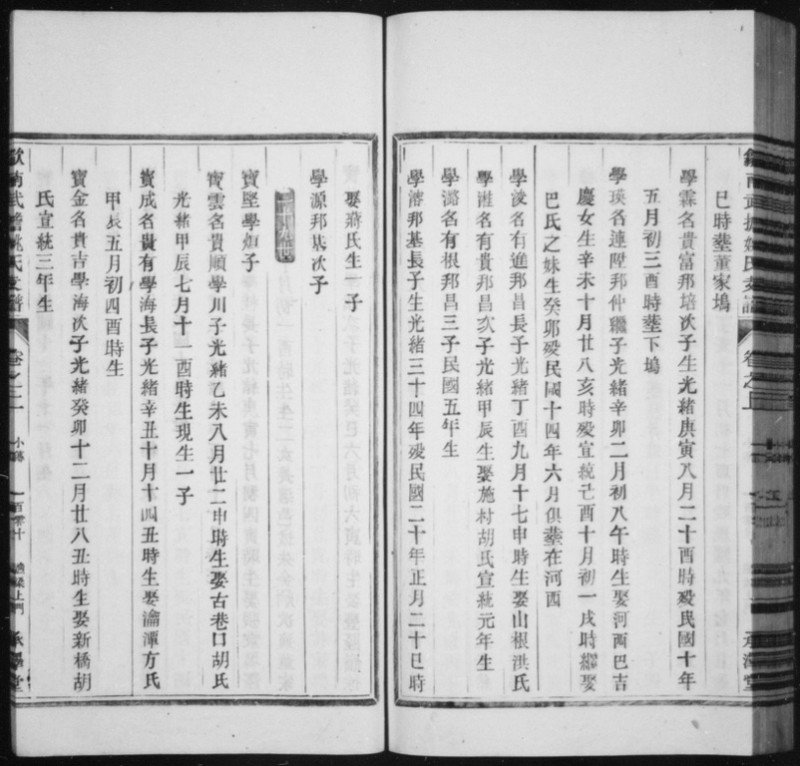 巳時塟董家塢
學霖名貴富邦培次子生光緒庚寅八月二十酉時殁民國十年
五月初三酉時塟下塢
學瑛名連陞邦仲繼子光緒辛卯二月初八午時生娶河西巴吉
慶女生辛未十月廿八亥時殁宣統己酉十月初一戌時繼娶
巴氏之妹生癸卯殁民國十四年六月俱塟在河西
學浚名有進邦昌長子光緒丁酉九月十七申時生娶山根洪氏
學淮名有貴邦昌次子光緒甲辰生娶施村胡氏宣統元年生
學潞名有根邦昌三子民國五年生
學濬邦基長子生光緒三十四年殁民國二十年正月二十巳時
娶蔣氏生一子
學源邦基次子
寶堅學烜子
寶雲名貴順學川子光緒乙未八月廿二申時生娶古巷口胡氏
光緒甲辰七月十一酉時生現生一子
寶成名貴有學海長子光緒辛丑十月十四丑時生娶瀹潭方氏
甲辰五月初四酉時生
寶金名貴吉學海次子光緒癸卯十二月廿八丑時生娶新橋胡
氏宣統三年生
歙南武擔姚氏支譜
卷之